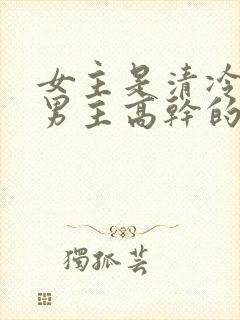 女主是清冷
男主高幹的
獨孤芸